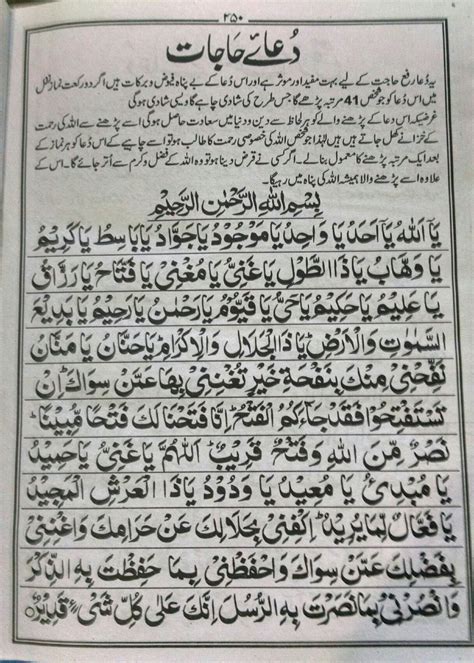 ۲۵۰
دُعائے حَاجَات
یہ دُعا رفع حاجت کے لیے بہت مفید اور موثر ہے اور اس دُعا کے بے پناہ فیوض و برکات ہیں اگر دو رکعت نماز نفل
میں اس دُعا کو جو شخص 41 مرتبہ پڑھے گا جس طرح کی شادی چاہے گا ویسی شادی ہوگی
غرضیکہ اس دُعا کے پڑھنے والے کو ہر لحاظ سے دین و دنیا میں سعادت حاصل ہوگی اسے پڑھنے سے اللہ کی رحمت
کے خزانے کھل جاتے ہیں لہٰذا جو شخص اللہ کی خصوصی رحمت کا طالب ہو تو اسے چاہیے کہ اس دُعا کو ہر نماز کے
بعد ایک مرتبہ پڑھنے کا معمول بنالے۔ اگر کسی نے قرض دینا ہو تو وہ اللہ کے فضل و کرم سے اُتر جائے گا۔ اس کے
علاوہ اسے پڑھنے والا ہمیشہ اللہ کی پناہ میں رہیگا۔
بِسْمِ اللهِ الرَّحْمٰنِ الرَّحِيْمِ
يَآ اَللّٰهُ يَآ اَحَدُ يَا وَاحِدُ يَا مَوْجُوْدُ يَا جَوَّادُ يَا بَاسِطُ يَا كَرِيْمُ
يَا وَهَّابُ يَا ذَا الطَّوْلِ يَا غَنِيُّ يَا مُغْنِيْ يَا فَتَّاحُ يَا رَزَّاقُ
يَا عَلِيْمُ يَا حَكِيْمُ يَا حَيُّ يَا قَيُّوْمُ يَا رَحْمٰنُ يَا رَحِيْمُ يَا بَدِيْعَ
السَّمٰوٰتِ وَالْاَرْضِ يَا ذَا الْجَلَالِ وَالْاِكْرَامِ يَا حَنَّانُ يَا مَنَّانُ
نَفِّحْنِيْ مِنْكَ بِنَفْحَةِ خَيْرٍ تُغْنِنِيْ بِهَا عَمَّنْ سِوَاكَ اِنْ
تَسْتَفْتِحُوْا فَقَدْ جَآءَكُمُ الْفَتْحُ اِنَّا فَتَحْنَا لَكَ فَتْحًا مُّبِيْنًا
نَصْرٌ مِّنَ اللهِ وَفَتْحٌ قَرِيْبٌ اَللّٰهُمَّ يَا غَنِيُّ يَا حَمِيْدُ
يَا مُبْدِئُ يَا مُعِيْدُ يَا وَدُوْدُ يَا ذَا الْعَرْشِ الْمَجِيْدُ
يَا فَعَّالٌ لِّمَا يُرِيْدُ اِكْفِنِيْ بِحَلَالِكَ عَنْ حَرَامِكَ وَاغْنِنِيْ
بِفَضْلِكَ عَمَّنْ سِوَاكَ وَاحْفَظْنِيْ بِمَا حَفِظْتَ بِهِ الذِّكْرَ
وَانْصُرْنِيْ بِمَا نَصَرْتَ بِهِ الرُّسُلَ اِنَّكَ عَلٰى كُلِّ شَيْءٍ قَدِيْرٌ